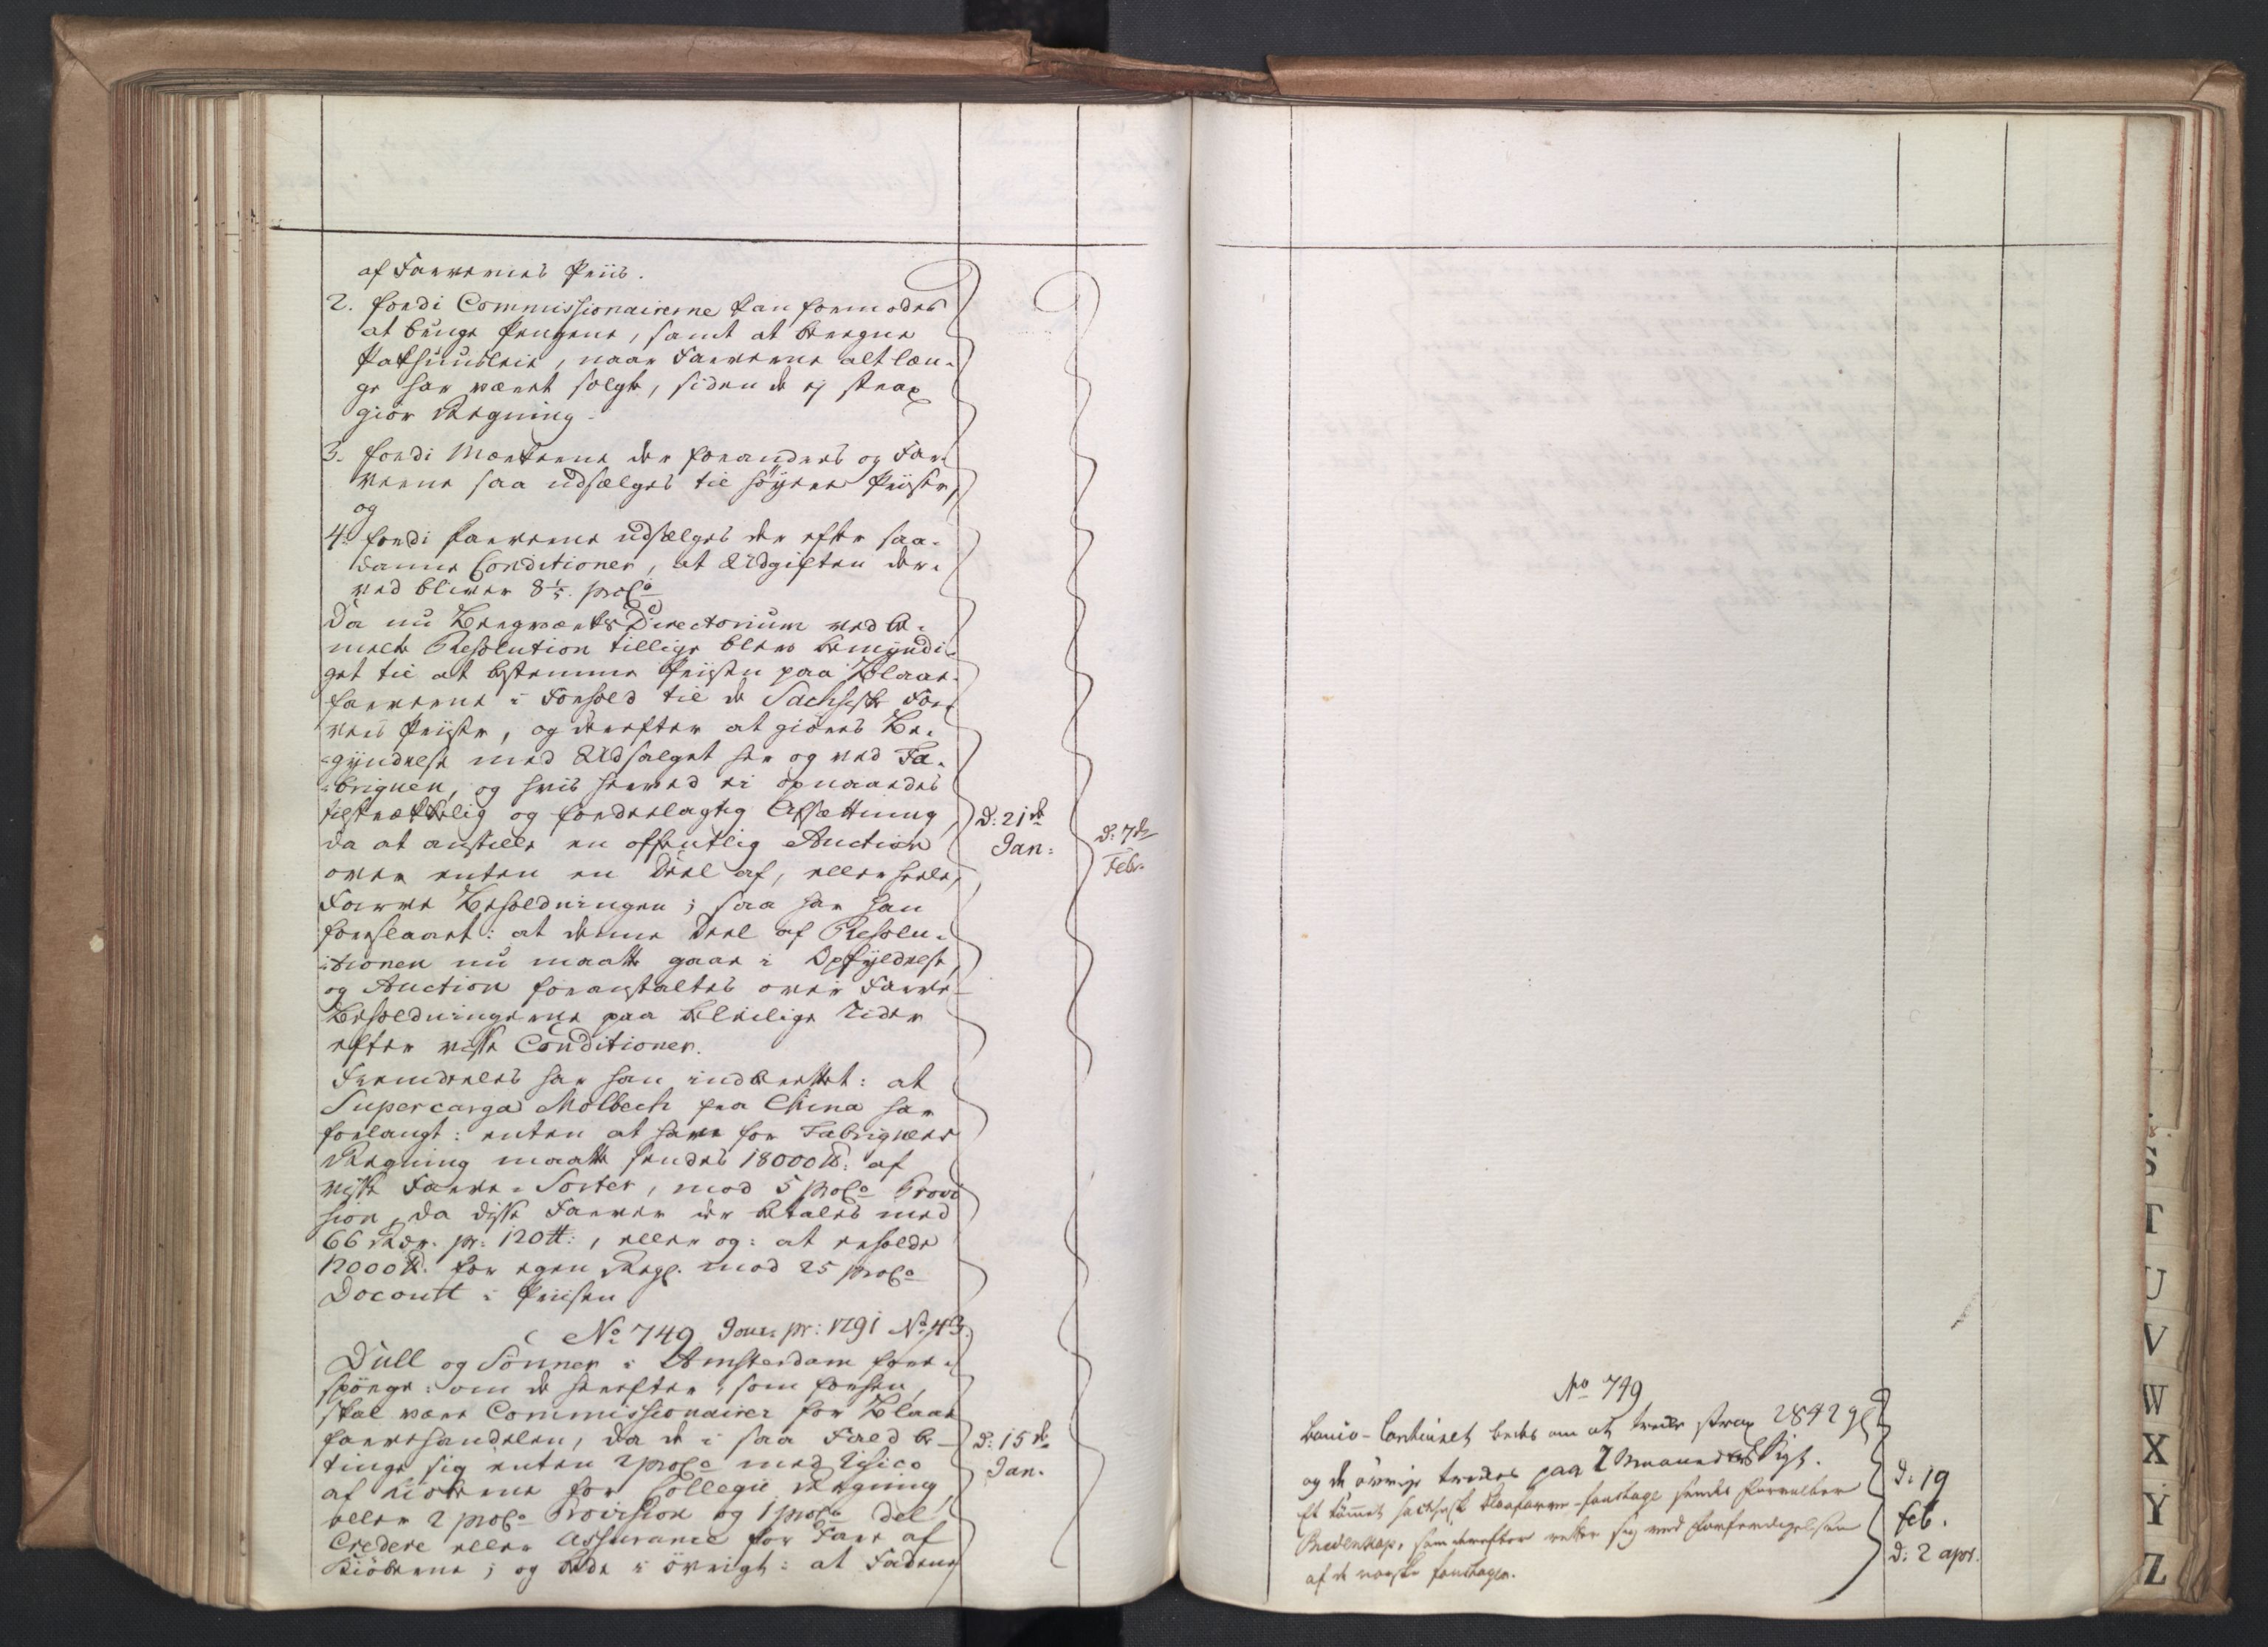 af Farvernes Priis.
2. fordi Commissionairerne kan formodes
at bruge Pengene, samt at beregne
Pakhuusleie, naar Farverne alt læn-
ge har været solgte, siden de ej strax
giør Regning.
3. fordi Mærkerne der forandres og Far-
verne saa udsælges til høyere Priiser,
og
4. fordi Farverne udsælges der efter saa-
danne Conditioner, at Udgiften der-
ved bliver 8 1/5 proCo
Da nu BergværksDirectorium ved be-
melte Resolution tillige blev bemyndi-
get til at bestemme Priisen paa Blaae-
farverne i Forhold til de Sachsiske Far-
vers Priiser, og derefter at giøres Be-
gyndelse med Udsalget her og ved Fa-
briquen, og hvis herved ei opnaaedes
tilstrækkelig og fordeelagtig Afsættning,
da at anstille en offentlig Auction
over enten en Deel af, eller heele,
Farve Beholdningen; saa har han
foreslaaet: at denne Deel af Resolu-
tionen nu maatte gaae i Opfyldelse,
og Auction foranstaltes over Farve-
Beholdningerne paa beleilige Tider
efter visse Conditioner.
Fremdeeles har han indberettet: at
Supercarga Molbech fra China har
forlangt: enten at have for Fabriqvens
Regning maatte sendes 18000 ℔: af
visse Farve-Sorter, mod 5 proCo Provi
sion, da disse Farver der betales med
66 Rdr. pr: 120 ℔:, eller og: at erholde
12000 ℔. for egen Regg. mod 25 proCo
Docourt i Priisen
No 749 Jour: pr: 1791 No 43.
Dull og Sønner i Amsterdam fore-
spørge: om de herefter, som forhen,
skal være Commissionairer for Blaae
farvehandelen, da de i saa Fald be-
tinge sig enten 2 proCo med Risico
af Kiøberne for Collegii Regning
eller 2 proCo Provision og 1 proCo Del
Credere eller Assurance for Fare af
Kiøberne; og bede i øvrigt: at Fadene
D: 21de
Jan:
D: 7de
Febr.
D: 15de
Jan.
No 749
Banco-Contoiret bedes om at trecke strax 2842 gl
og de øvrige treckes paa 2 Maaneders Sigt.
Et tømmet sachsisk Blaafarve-Foustage sendes Forvalter
Bredenkap, som derefter retter sig med Forfærdigelsen
af de norske Foustager.
D: 19
feb.
D: 2 apr.
S
T
U
V
W
X
Y
Z